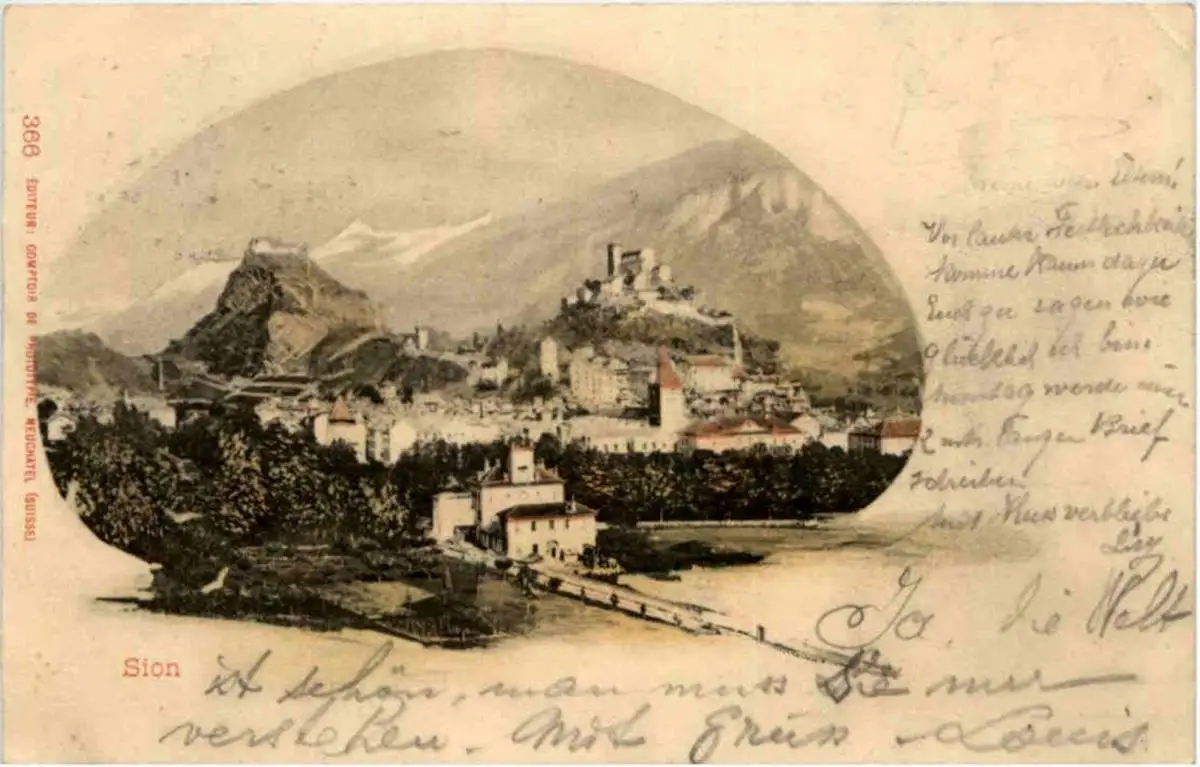 366 ÉDITEUR: COMPTOIR DE PHOTOTYPIE, NEUCHATEL (SUISSE)
Vor lauter
komme kaum dazu
Euch zu sagen wie
glücklich ich bin
werde ein
Brief
schreiben
Mit Kuss verbleibe
Ja, die Welt
Sion
ist schön, man muss Sie nur
verstehen. Mit Gruss Louis